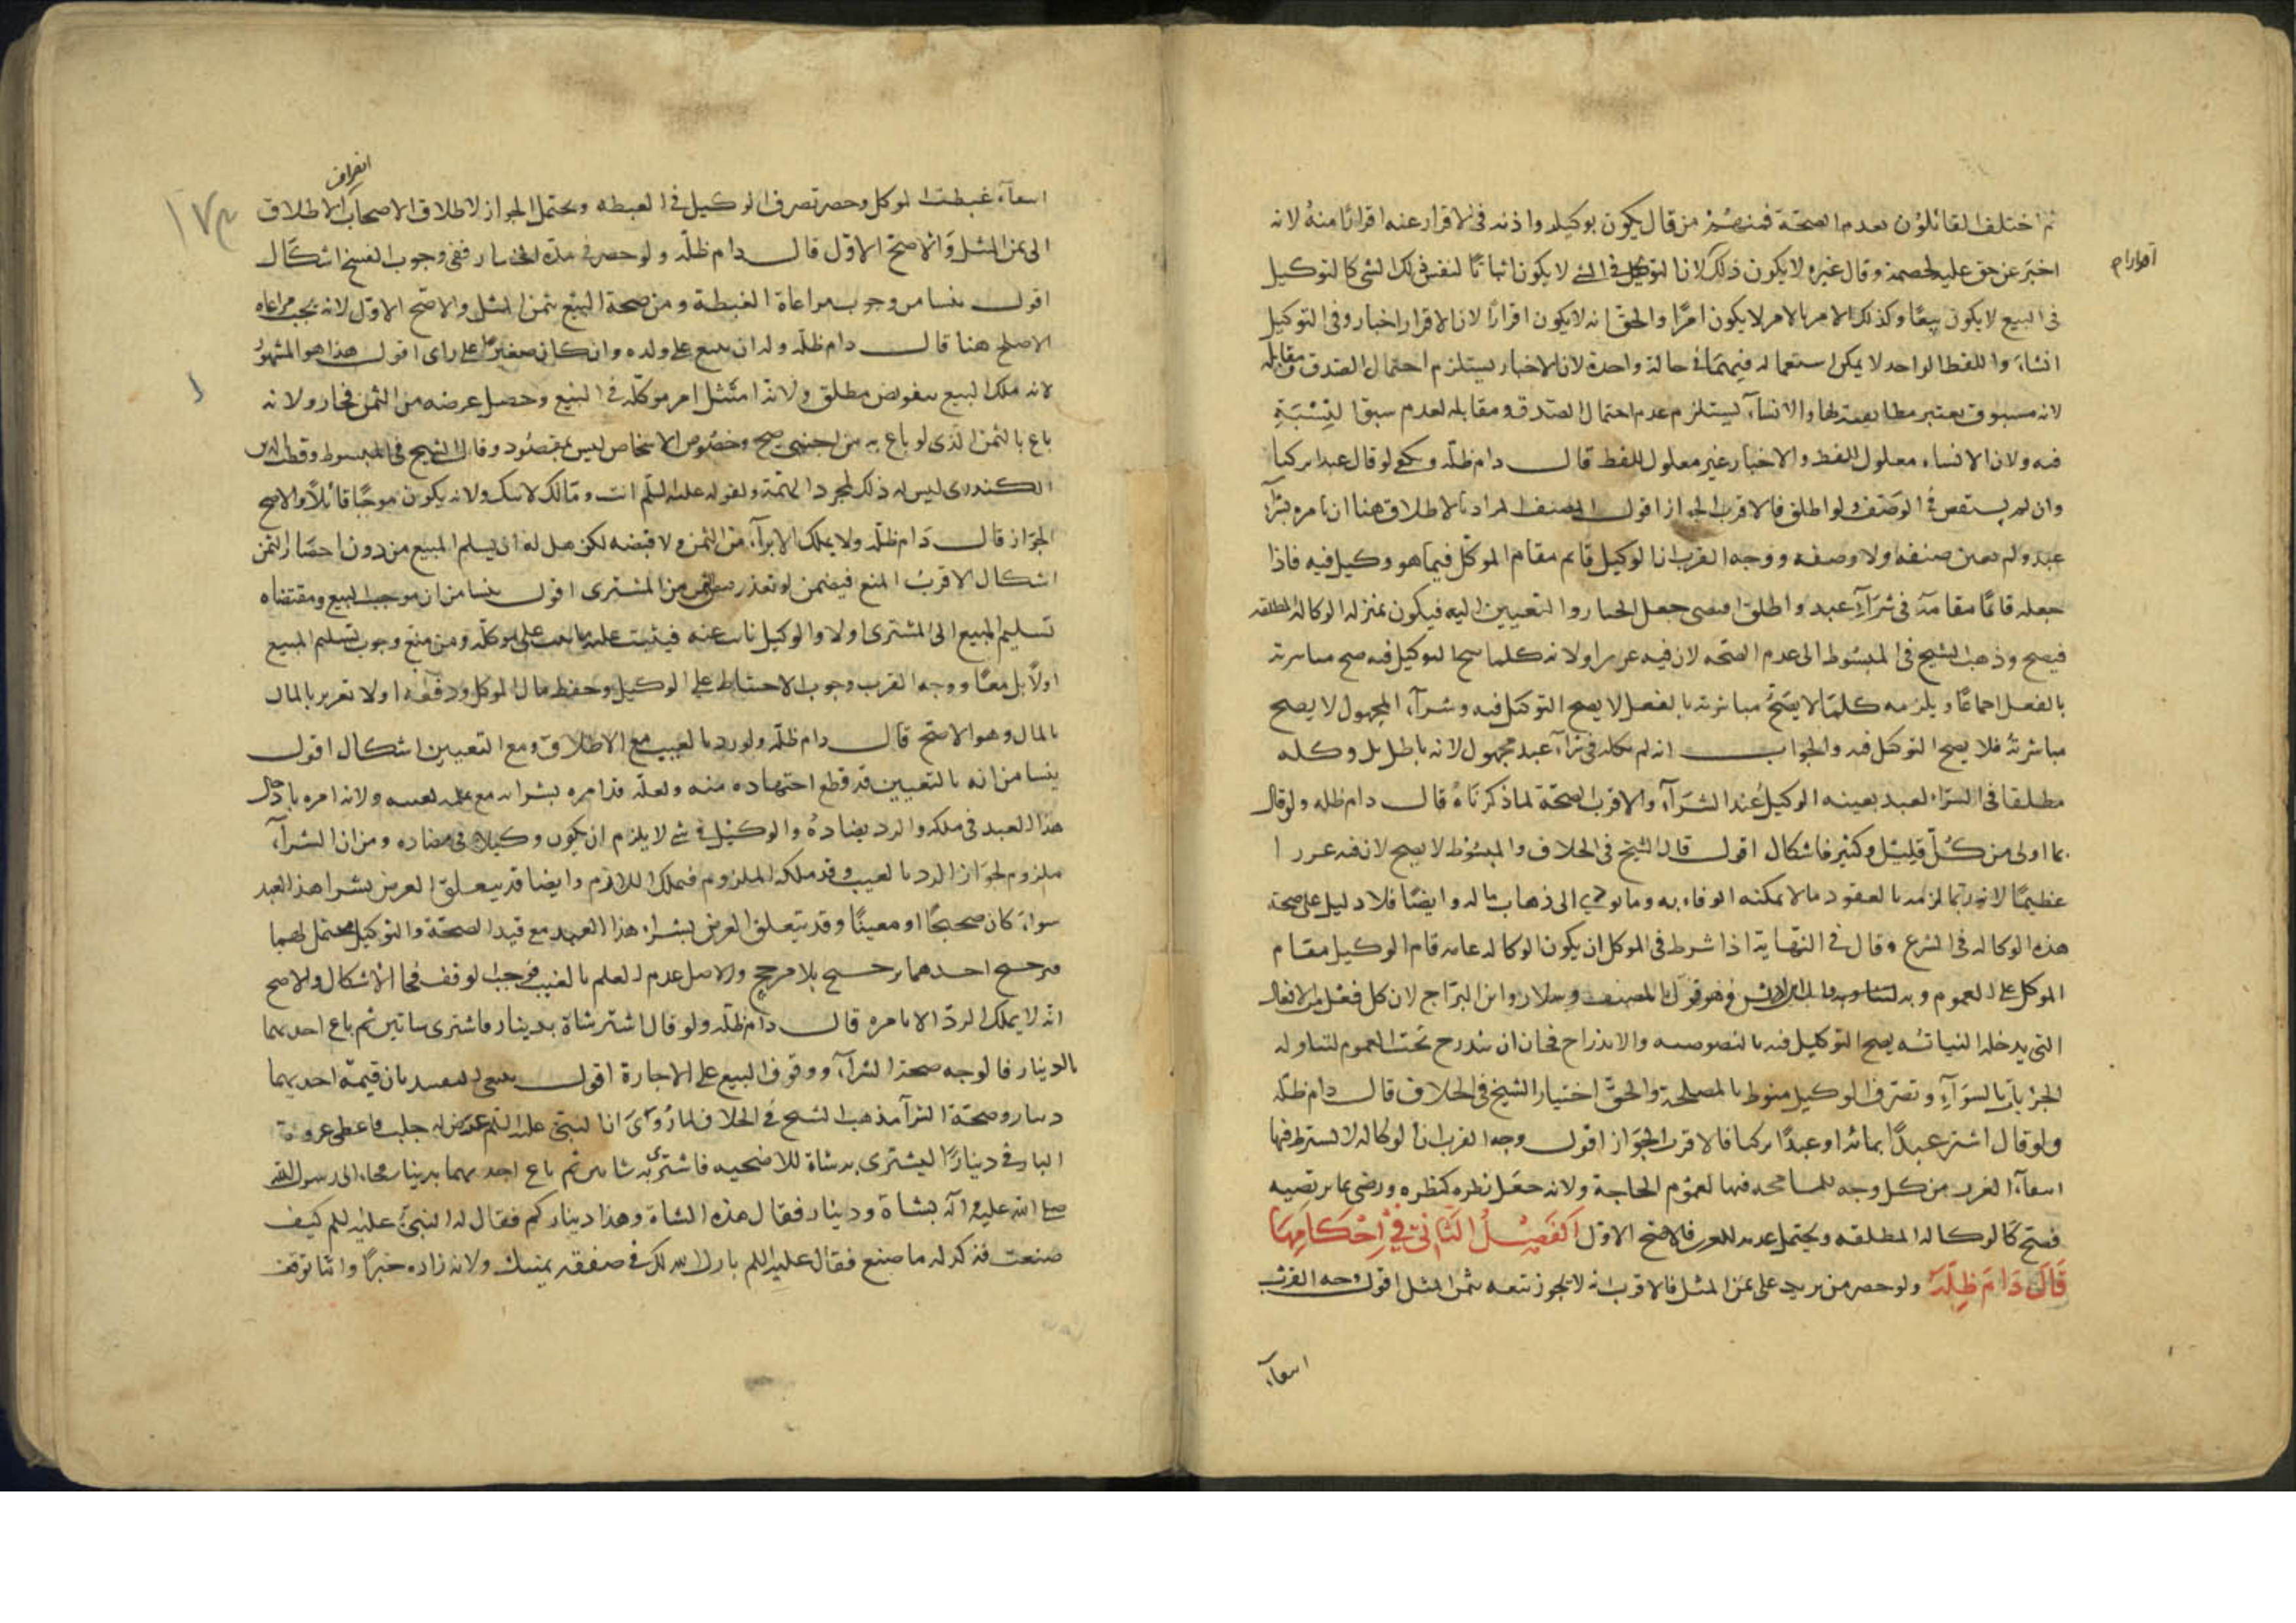 ثم اختلف القائلون بعدم الصحة فمنهم من قال يكون بوكيله واذنه فى الاقرار عنه اقرارًا منهُ لانه
اخبَر عن حق عليه لخصمه وقال غيره لا يكون ذلك لان التوكيل فى الشئ لا يكون اثباتًا لنفس ذلك الشى كالتوكيل
اقرارا م
فى البيع لا يكون بيعًا وكذلك الامر بالامر لا يكون امرًا والحق انه لا يكون اقرارًا لان الاقرار اخبار وفى التوكيل
انشاء واللفظ الواحد لا يمكن استعماله فيهما فى حالة واحدة لان الاخبار يستلزم احتمال الصدق ومقابله
لانه مسبوق بعتبر مطابقته لها والانشاء يستلزم عدم احتمال الصدق ومقابله لعدم سبق النِسْبَةِ
فيه ولان الانشاء معلول اللفظ والاخبار غير معلول اللفظ قال دام ظله ويكفى لو قال عبدا تركيا
وان لم يستقص فى الوَصف ولو اطلق فالاقرب الجواز اقول المصنف المراد بالاطلاق هنا ان يامره بشرآء
عبد ولم يعين صنفه ولا وصفه ووجه القرب ان الوكيل قائم مقام الموكّل فيما هو وكيل فيه فاذا
جعله قائمًا مقامه فى شرآءِ عبد واطلق اقتضى جعل الخيار والتعيين اليه فيكون بمنزلة الوكالة المطلقه
فيصح وذهب الشيخ فى المبسُوط الى عدم الصحه لان فيه غررا ولانه كلما صح التوكيل فيه صح مباشرته
بالفعل اجماعًا ويلزمه كلمّا لا يصَحُّ مباشرته بالفعل لا يصح التوكيل فيه وشرآء المجهول لا يصح
مباشرتهُ فلا يصح التوكيل فيه والجواب انه لم يوكله فى شرآء عبد مجهول لانه باطل بل وكله
مطلقا فى الشرَاء لعبد يعينه الوكيلُ عند الشرَآء والاقرب الصحّة لما ذكرناهُ قال دام ظله ولو قال
بما اولى من كُلّ قليْل وكثير فاشكال اقول قال الشيخ فى الخلاف والمبسُوط لا يصح لان فيه غررا
عظيمًا لانه ربّما لزمه بالعقود مالا يمكنه الوفاء به وما يودي الى ذهاب ماله وايضًا فلا دليل على صحة
هذه الوكاله فى الشرع وقال فى النّهاية اذا شرط فى الموكل ان يكون الوكاله عامه قام الوكيل مقام
الموكل على العموم وبه وهو قول المصنف وسلار وابن البرّاج لان كل فعل من الافعال
التى يدخلها النيابة يصح التوكيل فيه بالنصوصيه والاندراج فجاز ان يندرج تحت العموم لتناوله
الجزئيات بالسَوآءِ وتصرف الوكيل منوط بالمصلحة والحقّ اختيار الشيخ فى الخلاف قال دام ظلّه
ولو قال اشتر عبدًا بمائه او عبدًا تركيا فالاقرب الجوَاز اقول وجه القرب ان الوكاله لا يشترط فيها
انتفآء الغرر من كل وجه للمسامحه فيها لعمُوم الحاجة ولانه جعَل نظره كنظره ورضى بما يرتضيه
فصح كالوكاله المطلقه ويحتمل عدمه للغرر فالاصح الاول اَلفَصْلُ الثَاِنىْ فِىْ اَحْكَامِهَا
قَالَ دَامَ ظِلّه ولو حصر من يزيد على ثمن المثل فالاقرب انه لا يجوز بيعه بثمن المثل اقول وجه القرب
انتفآء
انصراف
انتفآء غبطة الموكل وحصر تصرف الوكيل فى الغبطه ويحتمل الجواز لاطلاق الاصحاب الاطلاق
١٧٣
الى ثمن المثل وَالاصحّ الاوّل قال دام ظلّه ولو حصر فى مدّه الخيار ففى وجوب الفسخ اشكال
اقول ينشا من وجوب مراعاة الغبطة ومن صحة البيع بثمن المثل والاصح الاوّل لانه يجب مراعاه
الاصلح هنا قال دام ظلّه وله ان يبيع على ولده وان كان صغيرًا على راى اقول هذا هو المشهوُر
لانه ملك البيع بتفويض مطلق ولانهُ امتثل امر موكّله فى البَيع وحصل غرضه من الثمن فجاز ولانه
باع بالثمن الذى لو باع به من اجنبى صح وخصُوص الاشخاص ليس بمقصُود وقال الشيخ فى المبسوط وقطب الدين
الكندرى ليس له ذلك لمجرد التهمة ولقوله عليه السّلم انت ومالك لابيك ولانه يكون موجبًا قابلاً والاصح
الجوَاز قال دَام ظلّه ولا يملك الابرآء من الثمن ولا قبضه لكن هل له ان يسلم المبيع من دون احضار الثمن
اشكال الاقرب المنع فيضمن لو تعذر من المشترى اقول ينشا من ان موجب البيع ومقتضاه
تسليم المبيع الى المشترى اولا والوكيل نائب عنه فيثبت عليه ما يثبت على موكّله ومن منع وجوب تسليم المبيع
اولاً بل معًا ووجه القرب وجوب الاحتياط على الوكيل وحفظ مال الموكل ودفعه اولا تغرير بالمال
بالمال وهو الاصح قال دام ظلّه ولو رد بالعيب مع الاطلاق ومع التعيين اشكال اقول
ينشا من انه بالتعيين قد قطع اجتهاده منه ولعلّه قد امره بشرائه مع علمه بعيبه ولانه امره بادخال
هذا العبد فى ملكه والرد يضادهُ والوكيْل فى شئ لا يلزم ان يكون وكيلا فى مضاده ومن ان الشرآء
ملزوم لجوَاز الرد بالعيب وقد ملكه الملزوم فيملك اللازم وايضا قد يتعلق الغرض بشرا هذا العبد
سواءَ كان صحيحًا او معيبًا وقد يتعلق الغرض بشراء هذا العبد مع قيد الصحّة والتوكيل محتمل لهما
فترجيح احدهما ترجيح بلا مرجح والاصل عدم العلم بالعيب فوجب التوقف فجاء الاشكال والاصح
انّه لا يملك الردّ الا بامره قال دام ظلّه ولو قال اشتر شاة بدينار فاشترى شاتين ثم باع احديهما
بالدينار فالوجه صحة الشرآء ووقوف البيع على الاجازة اقول ينبغى التقييد بان قيمة احديهما
دينار وصحّة الشرآ مذهب الشيخ فى الخلاف لما رُوىَ ان النبَىّ عليه السّلم عرض له جلب فاعطى عروة
البارقى دينارًا ليشترى به شاة للاضحيه فاشترى به شاتين ثم باع احديهما بدينار فجاء الى رسول اللّه
صلى اللّه عليه وآله بشاة ودينار فقال هذه الشاة وهذا ديناركم فقال له النبىّ عليه السلم كيف
صنعت فذكر له ما صنع فقال عليه السلم بارك اللّه لك فى صفقه يمينك ولانه زاده خيرًا وانما توقف